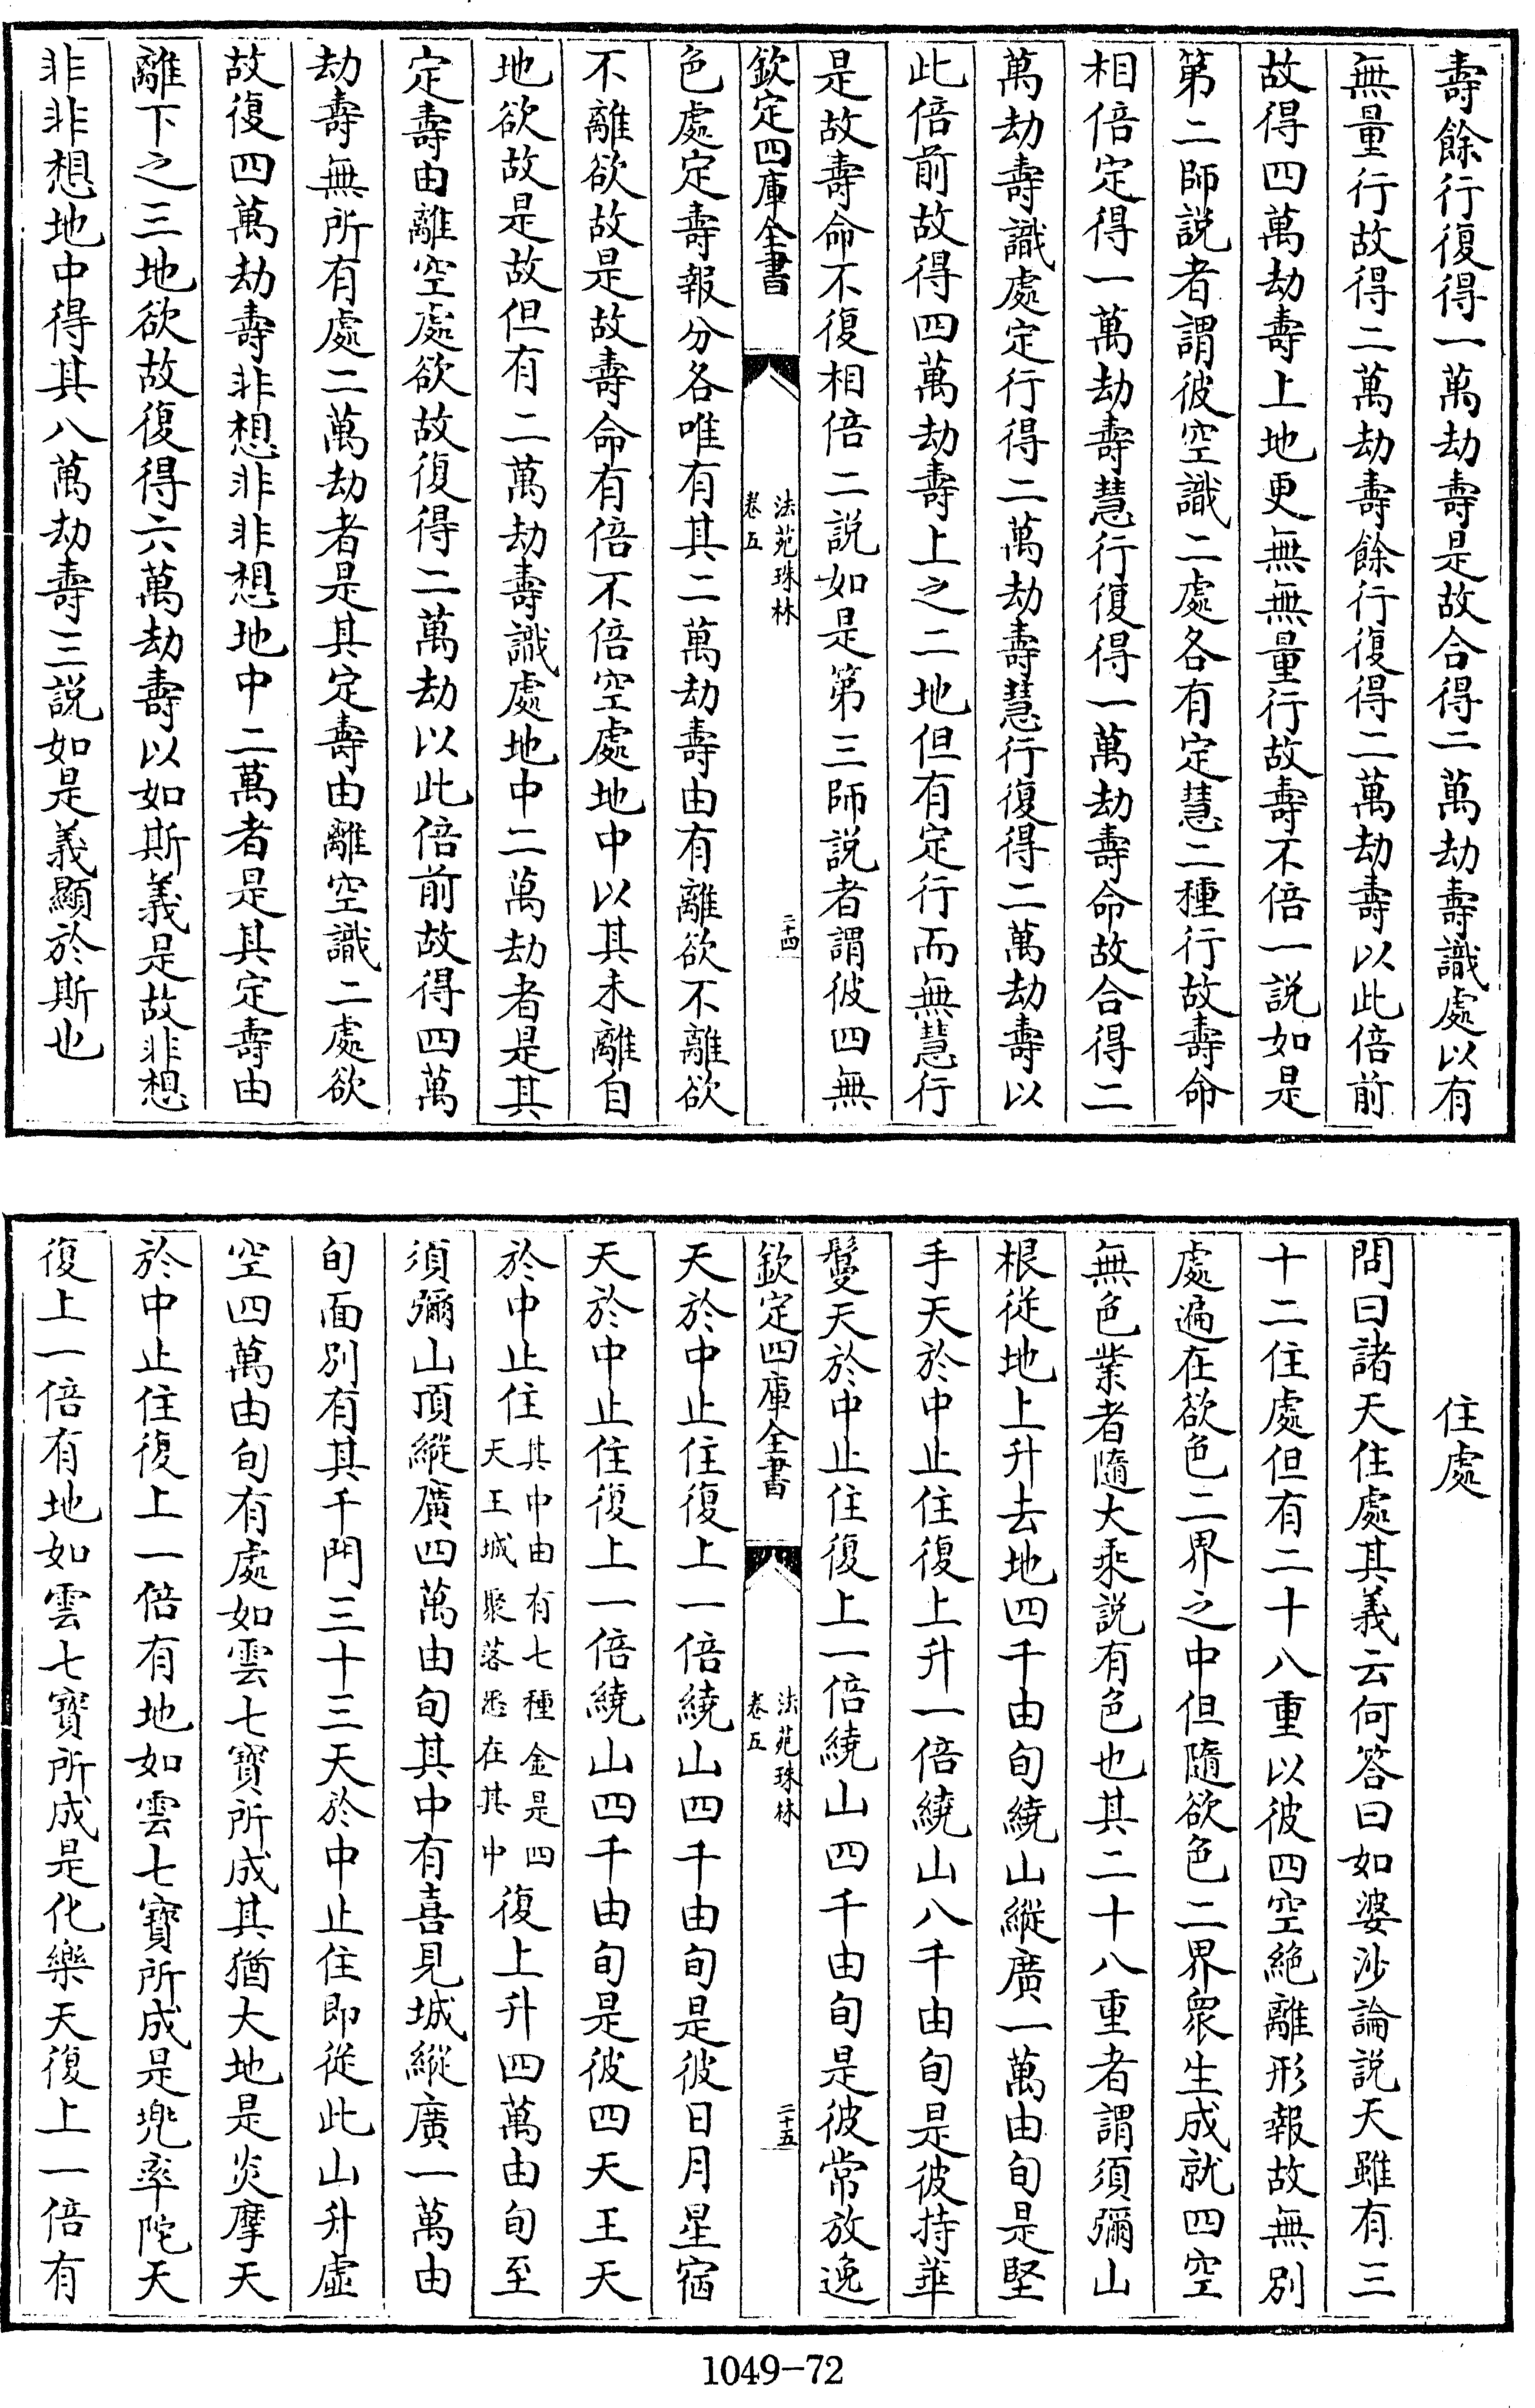 壽餘行復得一萬劫壽是故合得二萬劫壽識處以有
無量行故得二萬劫壽餘行復得二萬劫壽以此倍前
故得四萬劫壽上地更無無量行故壽不倍一説如是
第二師説者謂彼空識二處各有定慧二種行故壽命
相倍定得一萬劫壽慧行復得一萬劫壽命故合得二
萬劫壽識處定行得二萬劫壽慧行復得二萬劫壽以
此倍前故得四萬劫壽上之二地但有定行而無慧行
是故壽命不復相倍二説如是第三師説者謂彼四無
欽定四庫全書
法苑珠林
卷五
二十四
色處定壽報分各唯有其二萬劫壽由有離欲不離欲
不離欲故是故壽命有倍不倍空處地中以其未離自
地欲故是故但有二萬劫壽識處地中二萬劫者是其
定壽由離空處欲故復得二萬劫以此倍前故得四萬
劫壽無所有處二萬劫者是其定壽由離空識二處欲
故復四萬劫壽非想非非想地中二萬者是其定壽由
離下之三地欲故復得六萬劫壽以如斯義是故非想
非非想地中得其八萬劫壽三説如是義顯於斯也
住處
問曰諸天住處其義云何答曰如婆沙論説天雖有三
十二住處但有二十八重以彼四空絶離形報故無別
處遍在欲色二界之中但隨欲色二界衆生成就四空
無色業者隨大乘説有色也其二十八重者謂須彌山
根從地上升去地四千由旬繞山縱廣一萬由旬是堅
手天於中止住復上升一倍繞山八千由旬是彼持華
鬘天於中止住復上一倍繞山四千由旬是彼常放逸
欽定四庫全書
法苑珠林
卷五
二十五
天於中止住復上一倍繞山四千由旬是彼日月星宿
天於中止住復上一倍繞山四千由旬是彼四天王天
於中止住其中由有七種金是四天王城聚落悉在其中復上升四萬由旬至
須彌山頂縱廣四萬由旬其中有喜見城縱廣一萬由
旬面別有其千門三十三天於中止住即從此山升虚
空四萬由旬有處如雲七寶所成其猶大地是炎摩天
於中止住復上一倍有地如雲七寶所成是兠率陀天
復上一倍有地如雲七寶所成是化樂天復上一倍有
1049-72